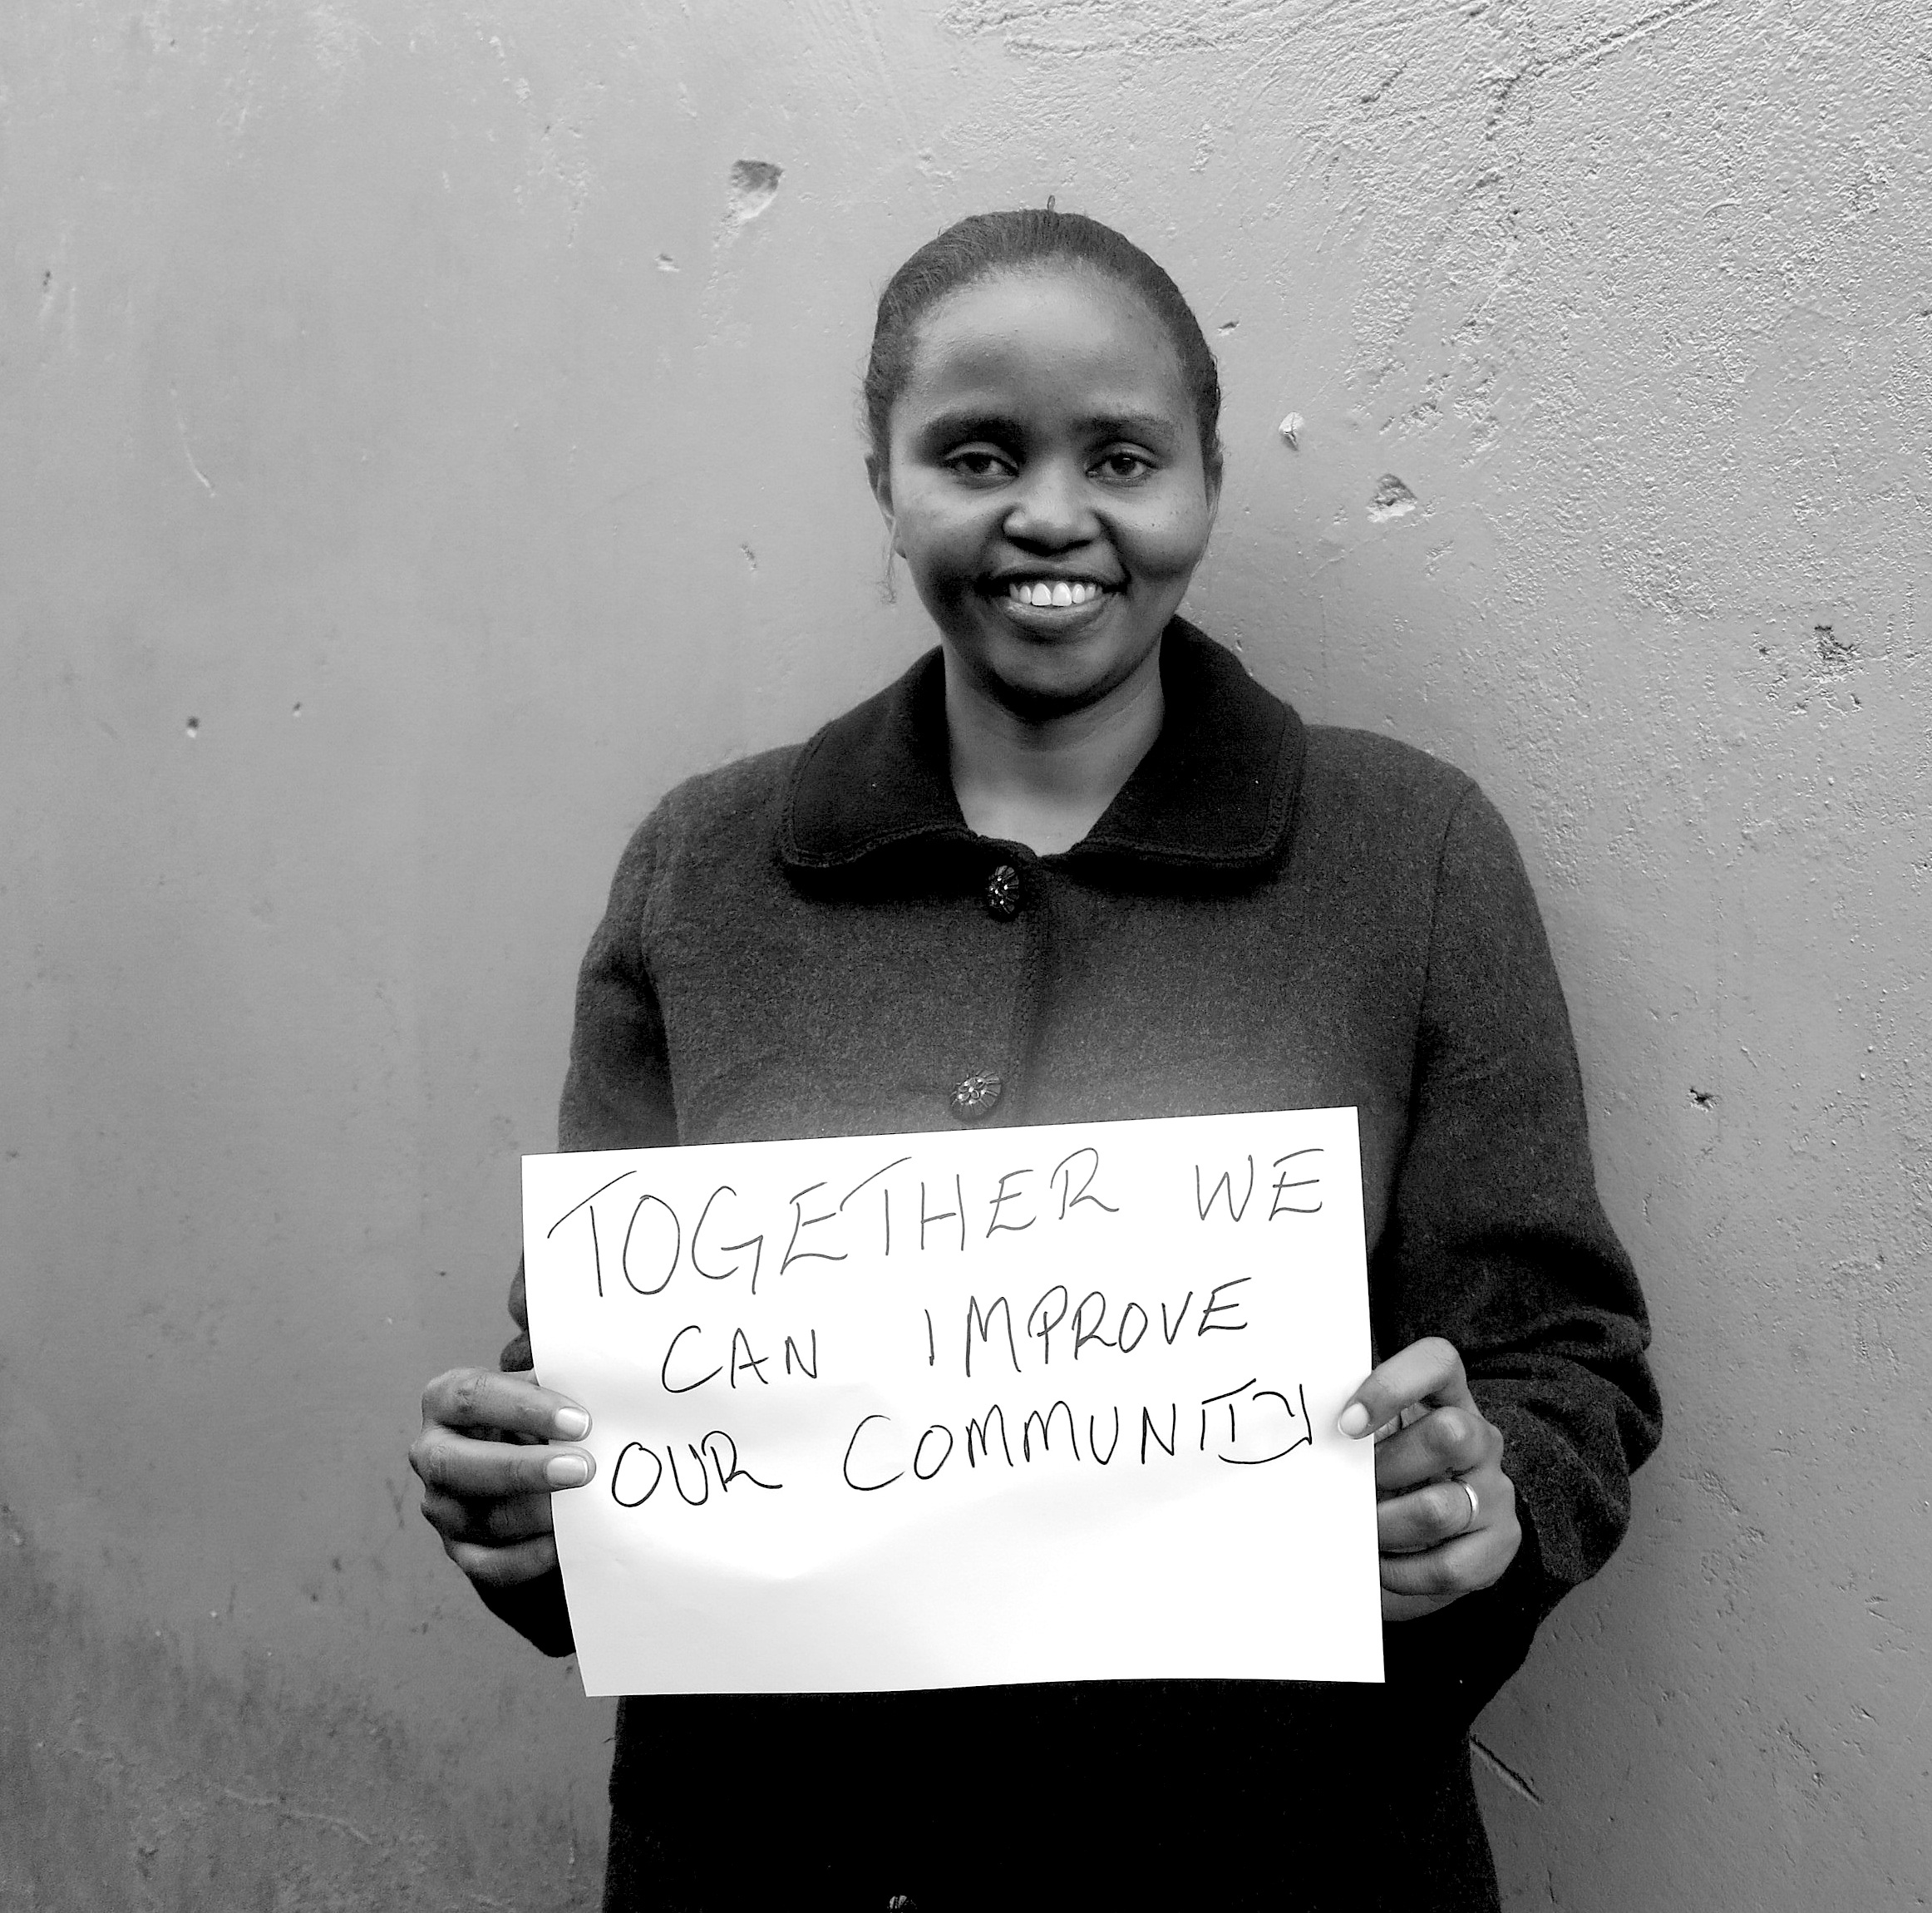 TOGETHER WE
CAN IMPROVE
OUR COMMUNITY